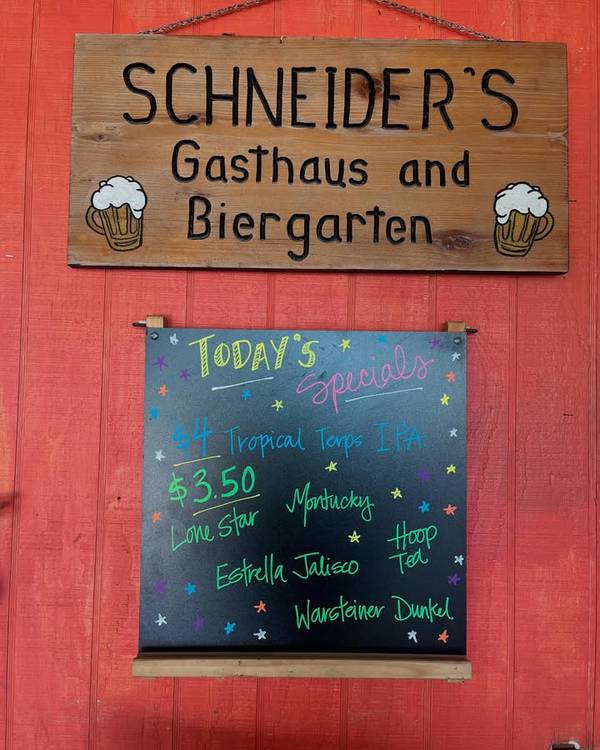 SCHNEIDER'S
Gasthaus and
Biergarten
TODAY'S
Specials
$4 Tropical Terps IPA
$3.50
Lone Star
Montucky
Hoop
Tea
Estrella Jalisco
Warsteiner Dunkel